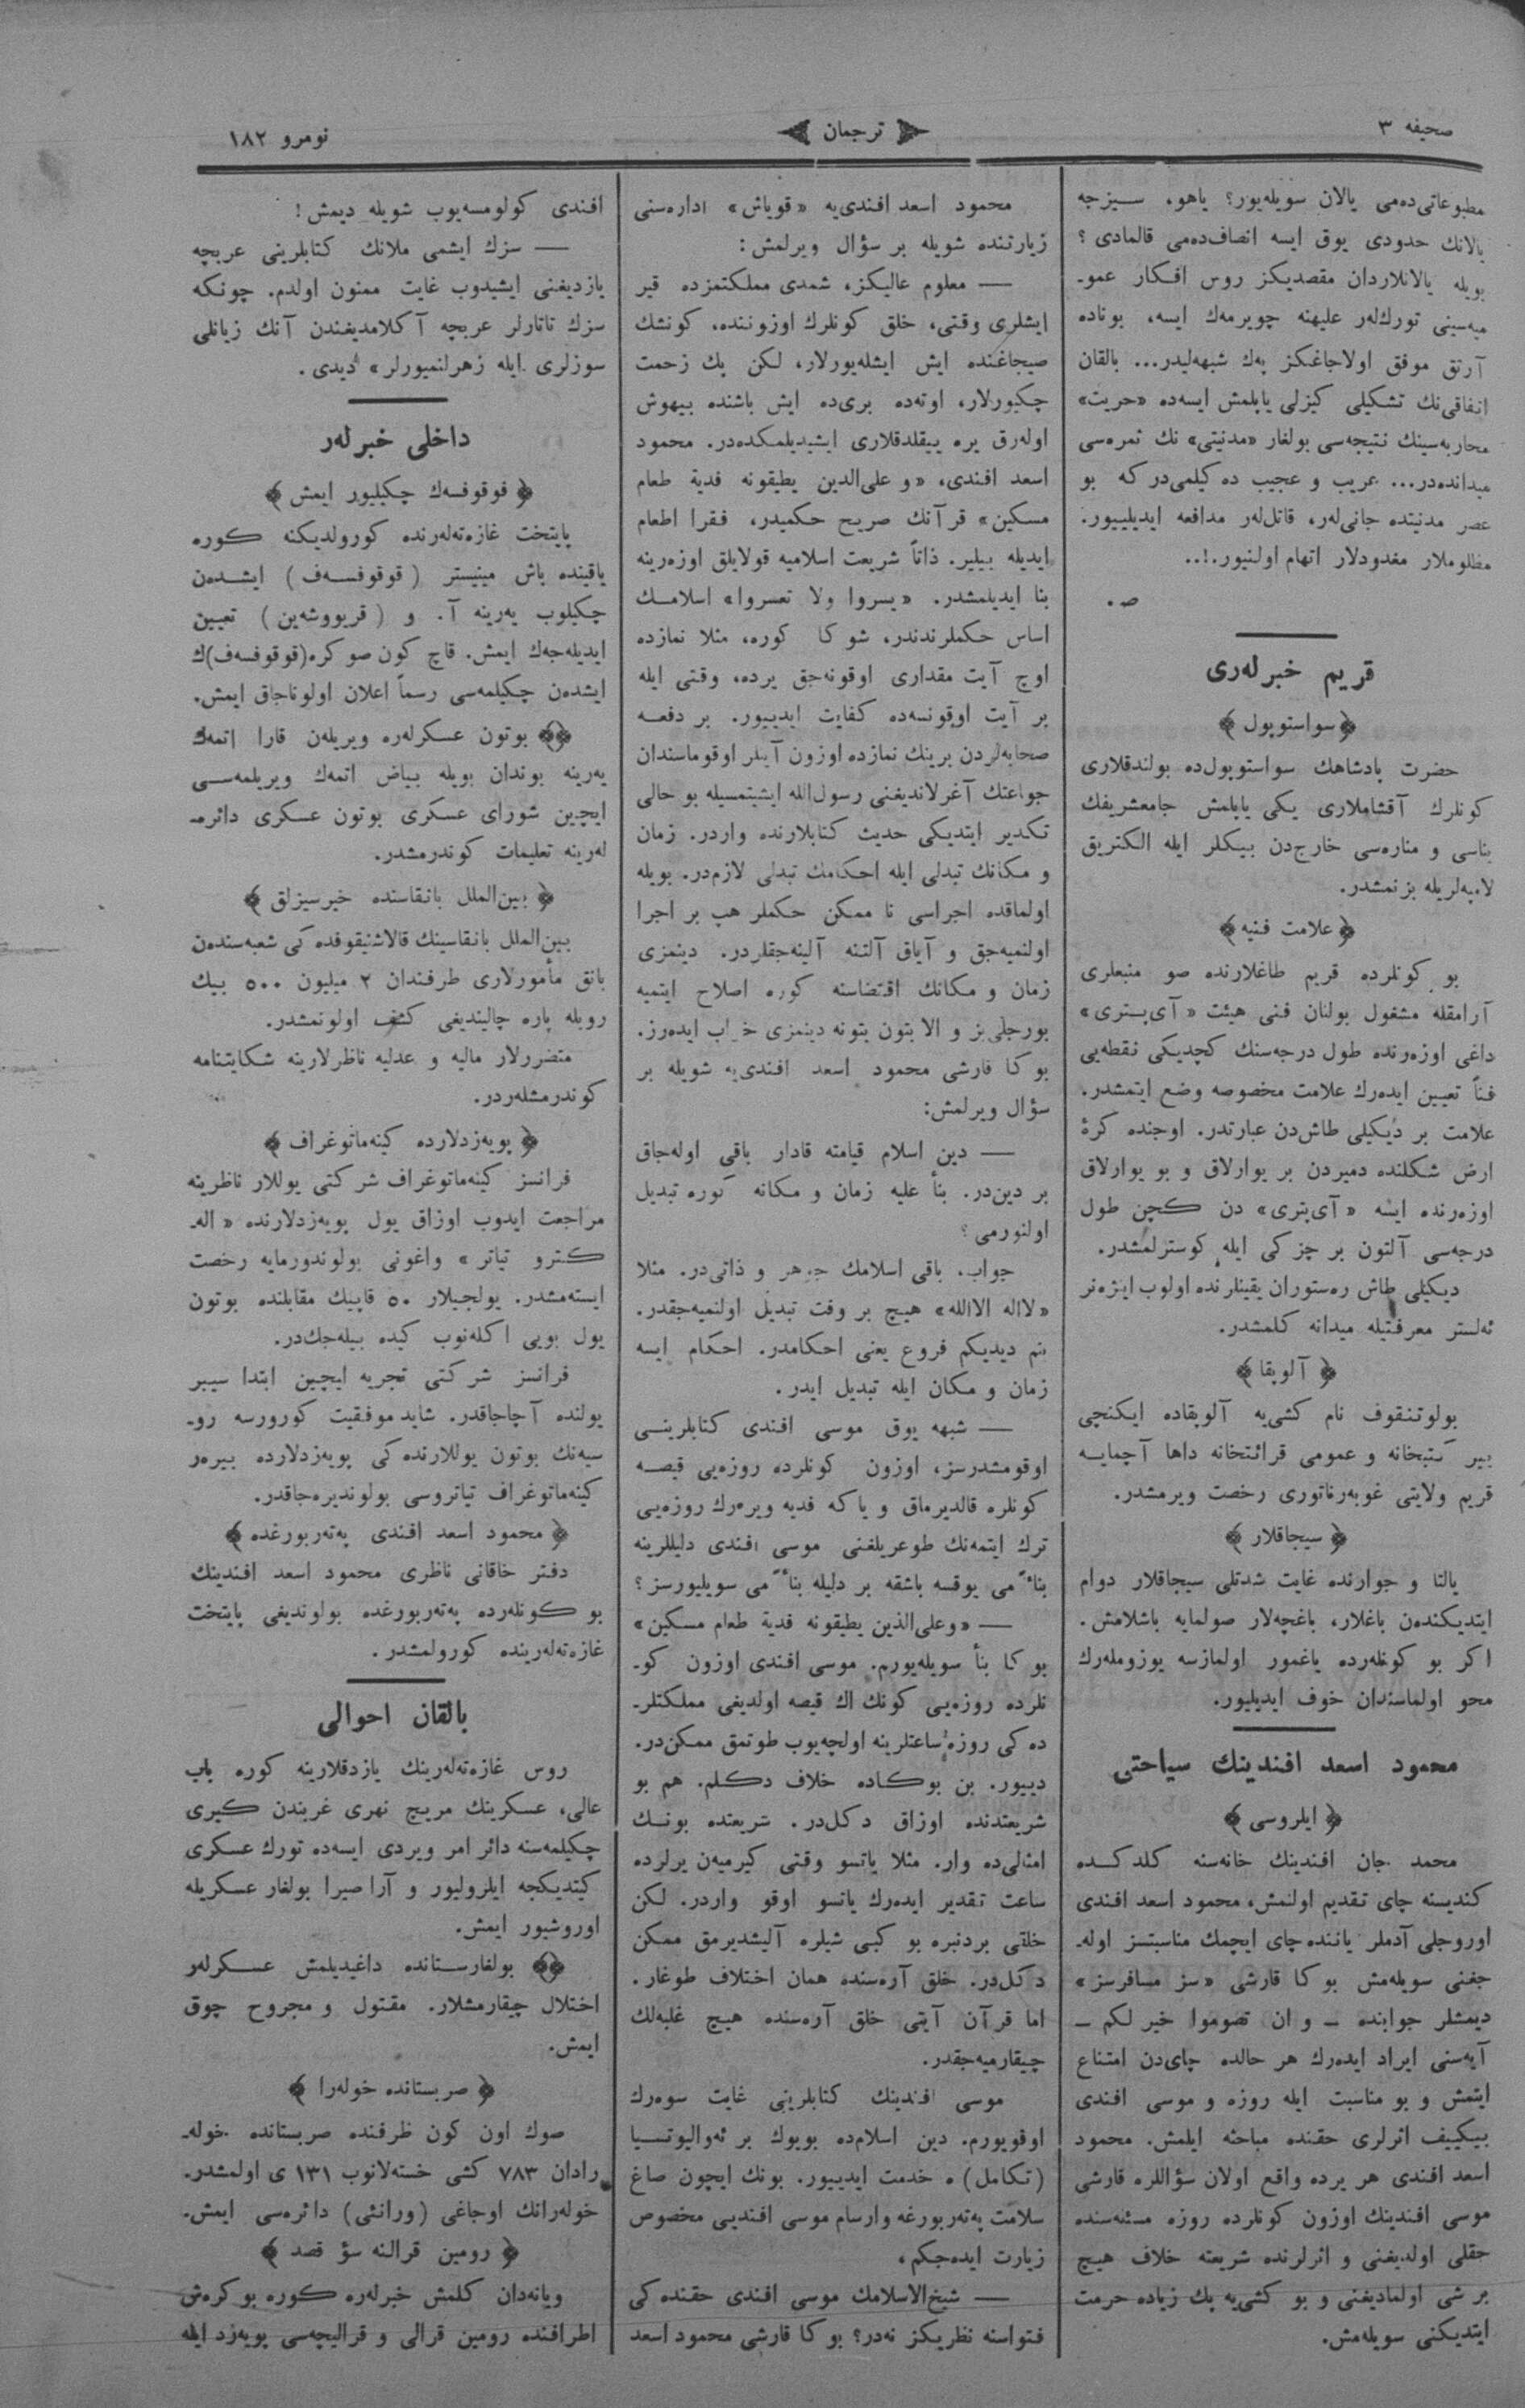 صحیفه ٣
ترجمان
نومرو ١٨٢
مطبوعاتی‌ده‌می یالان سویله‌یور؟ یاهو، سیزجه
یالانك حدودی یوق ایسه انصاف‌ده‌می قالمادی ؟
بویله یالانلاردان مقصدیكز روس افكار عمو-
میه‌سینی تورك‌لەر علیهنه چویرمەك ایسه، بوناده
آرتق موفق اولاجاغكز پەك شبهه‌لیدر... بالقان
اتفاقی‌نك تشكیلی كیزلی یاپلمش ایسه‌ده «حریت»
محاربه‌سینك نتیجه‌سی بولغار «مدنیتی» نك ثمره‌سی
میدانده‌در... غریب و عجیب ده كیلمی‌در كه بو
عصر مدنیتده جانی‌لەر، قاتل‌لەر مدافعه ایدیلییور.
مظلوملار مغدودلار اتهام اولنیور.!..
ص.
قریم خبرلەری
﴿سواستوپول﴾
حضرت پادشاهك سواستوپول‌ده بولندقلاری
كونلرك آقشاملاری یكی یاپلمش جامعشریفك
بناسی و مناره‌سی خارج‌دن بیكلر ایله الكتریق
لامپه‌لریله بزنمشدر.
﴿علامت فنیه﴾
بو كونلرده قریم طاغلارنده صو منبعلری
آرامقله مشغول بولنان فنی هیئت «آی‌پتری»
داغی اوزەرنده طول درجه‌سنك كچدیكی نقطه‌یی
فناً تعیین ایدەرك علامت مخصوصه وضع ایتمشدر.
علامت بر دیكیلی طاش‌دن عبارتدر. اوجنده كرۀ
ارض شكلنده دمیردن بر یوارلاق و بو یوارلاق
اوزەرنده ایسه «آی‌پتری» دن كچن طول
درجه‌سی آلتون بر چزكی ایله كوسترلمشدر.
دیكیلی طاش رەستوران یقینلرنده اولوب اینژەنر
ئەلستر معرفتیله میدانه كلمشدر.
﴿ آلوپقا ﴾
بولوتنقوف نام كشی‌یه آلوپقاده ایكنچی
بیر كتبخانه و عمومی قرائتخانه داها آچمایه
قریم ولایتی غوبەرناتوری رخصت ویرمشدر.
﴿ سیجاقلار ﴾
یالتا و جوارنده غایت شدتلی سیجاقلار دوام
ایتدیكندەن باغلار، باغچەلار صولمایه باشلامش.
اكر بو كونلەرده یاغمور اولمازسه یوزوملەرك
محو اولماسندان خوف ایدیلیور.
محمود اسعد افندینك سیاحتی
﴿ ایلروسی ﴾
محمد جان افندینك خانه‌سنه كلدكده
كندیسنه چای تقدیم اولنمش، محمود اسعد افندی
اوروجلی آدملر یاننده چای ایچمك مناسبتسز اوله-
جغنی سویله‌مش بو كا قارشی «سز مسافرسز»
دیمشلر جوابنده — و ان تصوموا خیر لكم —
آیه‌سنی ایراد ایدەرك هر حالده چای‌دن امتناع
ایتمش و بو مناسبت ایله روزه و موسی افندی
بیكییف اثرلری حقنده مباحثه ایلمش. محمود
اسعد افندی هر یرده واقع اولان سؤاللره قارشی
موسی افندینك اوزون كونلرده روزه مسئله‌سنده
حقلی اولدیغنی و اثرلرنده شریعته خلاف هیچ
بر شی اولمادیغنی و بو كشی‌یه پك زیاده حرمت
ایتدیكنی سویله‌مش.
محمود اسعد افندی‌یه «قویاش» اداره‌سنی
زیارتنده شویله بر سؤال ویرلمش :
— معلوم عالیكز، شمدی مملكتمزده قیر
ایشلری وقتی، خلق كونلرك اوزوننده، كونشك
صیجاغنده ایش ایشله‌یورلار، لكن پك زحمت
چكیورلار، اوتەده بری‌ده ایش باشنده بیهوش
اولەرق یره ییقلدقلاری ایشیدیلمكده‌در. محمود
اسعد افندی، «و علی‌الذین یطیقونه فدیة طعام
مسكین» قرآنك صریح حكمیدر، فقرا اطعام
ایدیله بیلیر. ذاتاً شریعت اسلامیه قولایلق اوزەرینه
بنا ایدیلمشدر. «یسروا ولا تعسروا» اسلامك
اساس حكملرندندر، شو كا كوره، مثلا نمازده
اوچ آیت مقداری اوقونه‌جق یرده، وقتی ایله
بر آیت اوقونسه‌ده كفایت ایدییور. بر دفعه
صحابه‌لردن برینك نمازده اوزون آیتلر اوقوماسندان
جماعتك آغرلاندیغنی رسول‌الله ایشیتمسیله بو حالی
تكدیر ایتدیكی حدیث كتابلارنده واردر. زمان
و مكانك تبدلی ایله احكامك تبدلی لازم‌در. بویله
اولماقده اجراسی نا ممكن حكملر هپ بر اجرا
اولنمیه‌جق و آیاق آلتنه آلینه‌جقلردر. دینمزی
زمان و مكانك اقتضاسنه كوره اصلاح ایتمیه
بورجلی‌یز و الا بتون بتونه دینمزی خراب ایدەرز.
بو كا قارشی محمود اسعد افندی‌یه شویله بر
سؤال ویرلمش:
— دین اسلام قیامته قادار باقی اوله‌جاق
بر دین‌در. بناً علیه زمان و مكانه كوره تبدیل
اولنورمی ؟
جواب. باقی اسلامك جوهر و ذاتی‌در. مثلا
«لااله الاالله» هیچ بر وقت تبدیل اولنمیه‌جقدر.
بنم دیدیكم فروع یعنی احكامدر. احكام ایسه
زمان و مكان ایله تبدیل ایدر.
— شبهه یوق موسی افندی كتابلرینی
اوقومشدرسز، اوزون كونلرده روزه‌یی قیصه
كونلره قالدیرماق و یا كه فدیه ویرەرك روزه‌یی
ترك ایتمەنك طوغریلغنی موسی افندی دلیللرینه
بناءً می یوقسه باشقه بر دلیله بناءً می سویلیورسز ؟
— «وعلی‌الذین یطیقونه فدیة طعام مسكین»
بو كا بناً سویله‌یورم. موسی افندی اوزون كو-
نلرده روزه‌یی كونك اك قیصه اولدیغی مملكتلر-
ده كی روزه ساعتلرینه اولچه‌یوب طوتمق ممكن‌در.
دییور. بن بوكاده خلاف دكلم. هم بو
شریعتدنده اوزاق دكل‌در. شریعتده بونك
امثالی‌ده وار. مثلا یاتسو وقتی كیرمیەن یرلرده
ساعت تقدیر ایدەرك یاتسو اوقو واردر. لكن
خلقی بردنبره بو كبی شیلره آلیشدیرمق ممكن
دكل‌در. خلق آره‌سنده همان اختلاف طوغار.
اما قرآن آیتی خلق آره‌سنده هیچ غلبه‌لك
چیقارمیه‌جقدر.
موسی افندینك كتابلرینی غایت سوەرك
اوقویورم. دین اسلام‌ده بویوك بر ئەوالیوتسیا
(تكامل) ه خدمت ایدییور. بونك ایچون صاغ
سلامت پەتەربورغه وارسام موسی افندیی مخصوص
زیارت ایدەجكم،
— شیخ‌الاسلامك موسی افندی حقنده كی
فتواسنه نظریكز نه‌در؟ بو كا قارشی محمود اسعد
افندی كولومسه‌یوب شویله دیمش!
— سزك ایشمی ملانك كتابلرینی عربچه
یازدیغنی ایشیدوب غایت ممنون اولدم. چونكه
سزك تاتارلر عربچه آكلامدیغندن آنك زیانلی
سوزلری ایله زهرلنمیورلر» دیدی.
داخلی خبرلەر
﴿ قوقوفسەك چكیلیور ایمش ﴾
پایتخت غازەتەلەرنده كورولدیكنه كوره
یاقینده باش مینیستر (قوقوفسەف) ایشدەن
چكیلوب یەرینه آ. و (قریووشەین) تعیین
ایدیلەجەك ایمش. قاچ كون صوكره(قوقوفسەف)ك
ایشدەن چكیلمەسی رسماً اعلان اولوناجاق ایمش.
﴿﴾ بوتون عسكرلەره ویریلەن قارا اتمەك
یەرینه بوندان بویله بیاض اتمەك ویریلمەسی
ایچین شورای عسكری بوتون عسكری دائره-
لەرینه تعلیمات كوندرمشدر.
﴿ بین‌الملل بانقاسنده خیرسیزلق ﴾
بین‌الملل بانقاسینك قالاشنیقوفده كی شعبه‌سندەن
بانق مأمورلاری طرفندان ٢ میلیون ٥٠٠ بیك
روبله پاره چالیندیغی كشف اولونمشدر.
متضررلار مالیه و عدلیه ناظرلارینه شكایتنامه
كوندرمشلەردر.
﴿ پویەزدلارده كینەماتوغراف ﴾
فرانسز كینەماتوغراف شركتی یوللار ناظرینه
مراجعت ایدوب اوزاق یول پویەزدلارنده «اله-
كترو تیاتر» واغونی بولوندورمایه رخصت
ایستەمشدر. یولجیلار ٥٠ قاپیك مقابلنده بوتون
یول بویی اكلەنوب كیده بیلەجك‌در.
فرانسز شركتی تجربه ایچین ابتدا سیبر
یولنده آچاجاقدر. شاید موفقیت كورورسه رو-
سیەنك بوتون یوللارنده كی پویەزدلارده بیرەر
كینەماتوغراف تیاتروسی بولوندیرەجاقدر.
﴿ محمود اسعد افندی پەتەربورغده ﴾
دفتر خاقانی ناظری محمود اسعد افندینك
بو كونلەرده پەتەربورغده بولوندیغی پایتخت
غازەتەلەرینده كورولمشدر.
بالقان احوالی
روس غازەتەلەرینك یازدقلارینه كوره باب
عالی، عسكرینك مریچ نهری غربندن كیری
چكیلمەسنه دائر امر ویردی ایسه‌ده تورك عسكری
كیتدیكجه ایلرولیور و آرا صیرا بولغار عسكریله
اوروشیور ایمش.
﴿﴾ بولغارستانده داغیدیلمش عسكرلەر
اختلال چیقارمشلار. مقتول و مجروح چوق
ایمش.
﴿ صربستانده خولەرا ﴾
صوك اون كون ظرفنده صربستانده خوله-
رادان ٧٨٣ كشی خسته‌لانوب ١٣١ ی اولمشدر.
خولەرانك اوجاغی (ورانئی) دائره‌سی ایمش.
﴿ رومین قرالنه سؤ قصد ﴾
ویانه‌دان كلمش خبرلەره كوره بوكرەش
اطرافنده رومین قرالی و قرالیچه‌سی پویەزد ایله